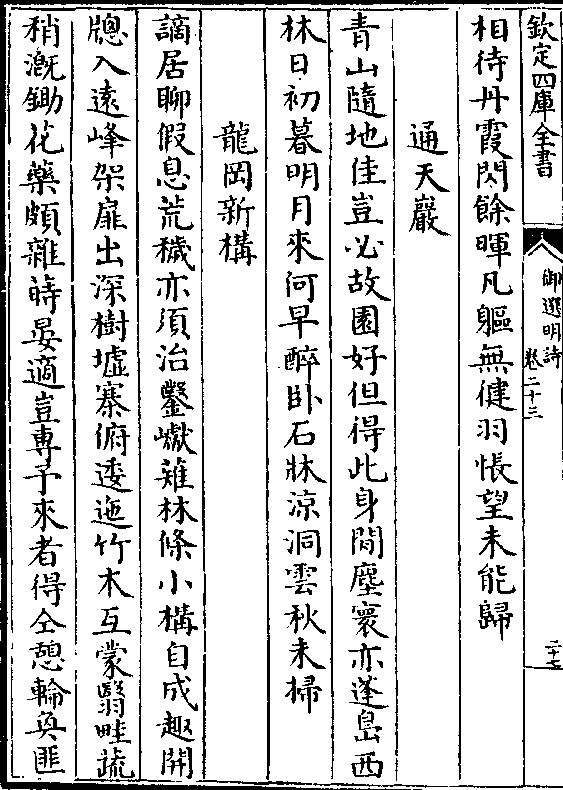 欽定四庫全書
御選明詩
卷二十三
二十七
相待丹霞閃餘暉凡軀無健羽悵望未能歸
通天巖
青山隨地佳豈必故園好但得此身閒塵寰亦蓬島西
林日初暮明月來何早醉卧石牀涼洞雲秋未掃
龍岡新構
謫居聊假息荒穢亦須治鑿巘薙林條小構自成趣開
牕入遠峰架扉出深樹墟寨俯逶迤竹木互蒙翳畦蔬
稍溉鋤花藥頗雜蒔宴適豈専予來者得仝憩輪奐匪